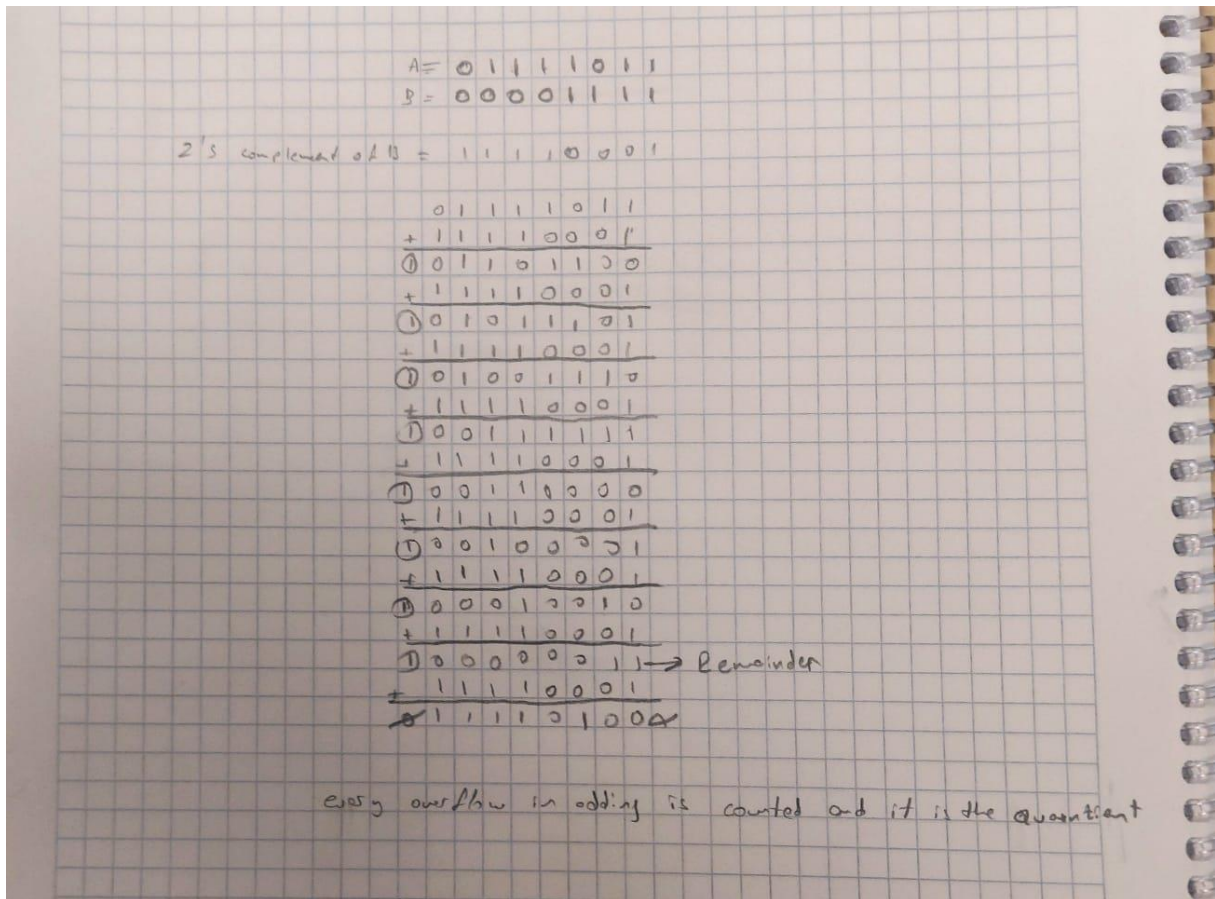 A= 0 1 1 1 1 0 1 1
B = 0 0 0 0 1 1 1 1
2's complement of B = 1 1 1 1 0 0 0 1
0 1 1 1 1 0 1 1
+ 1 1 1 1 0 0 0 1
1 0 1 1 0 1 1 0 0
+ 1 1 1 1 0 0 0 1
1 0 1 0 1 1 1 0 1
+ 1 1 1 1 0 0 0 1
1 0 1 0 0 1 1 1 0
+ 1 1 1 1 0 0 0 1
1 0 0 1 1 1 1 1 1
+ 1 1 1 1 0 0 0 1
1 0 0 1 1 0 0 0 0
+ 1 1 1 1 0 0 0 1
1 0 0 1 0 0 0 0 1
+ 1 1 1 1 0 0 0 1
1 0 0 0 1 0 0 1 0
+ 1 1 1 1 0 0 0 1
1 0 0 0 0 0 0 1 1 → Remainder
+ 1 1 1 1 0 0 0 1
0 1 1 1 1 0 1 0 0
every overflow in adding is counted and it is the quontient